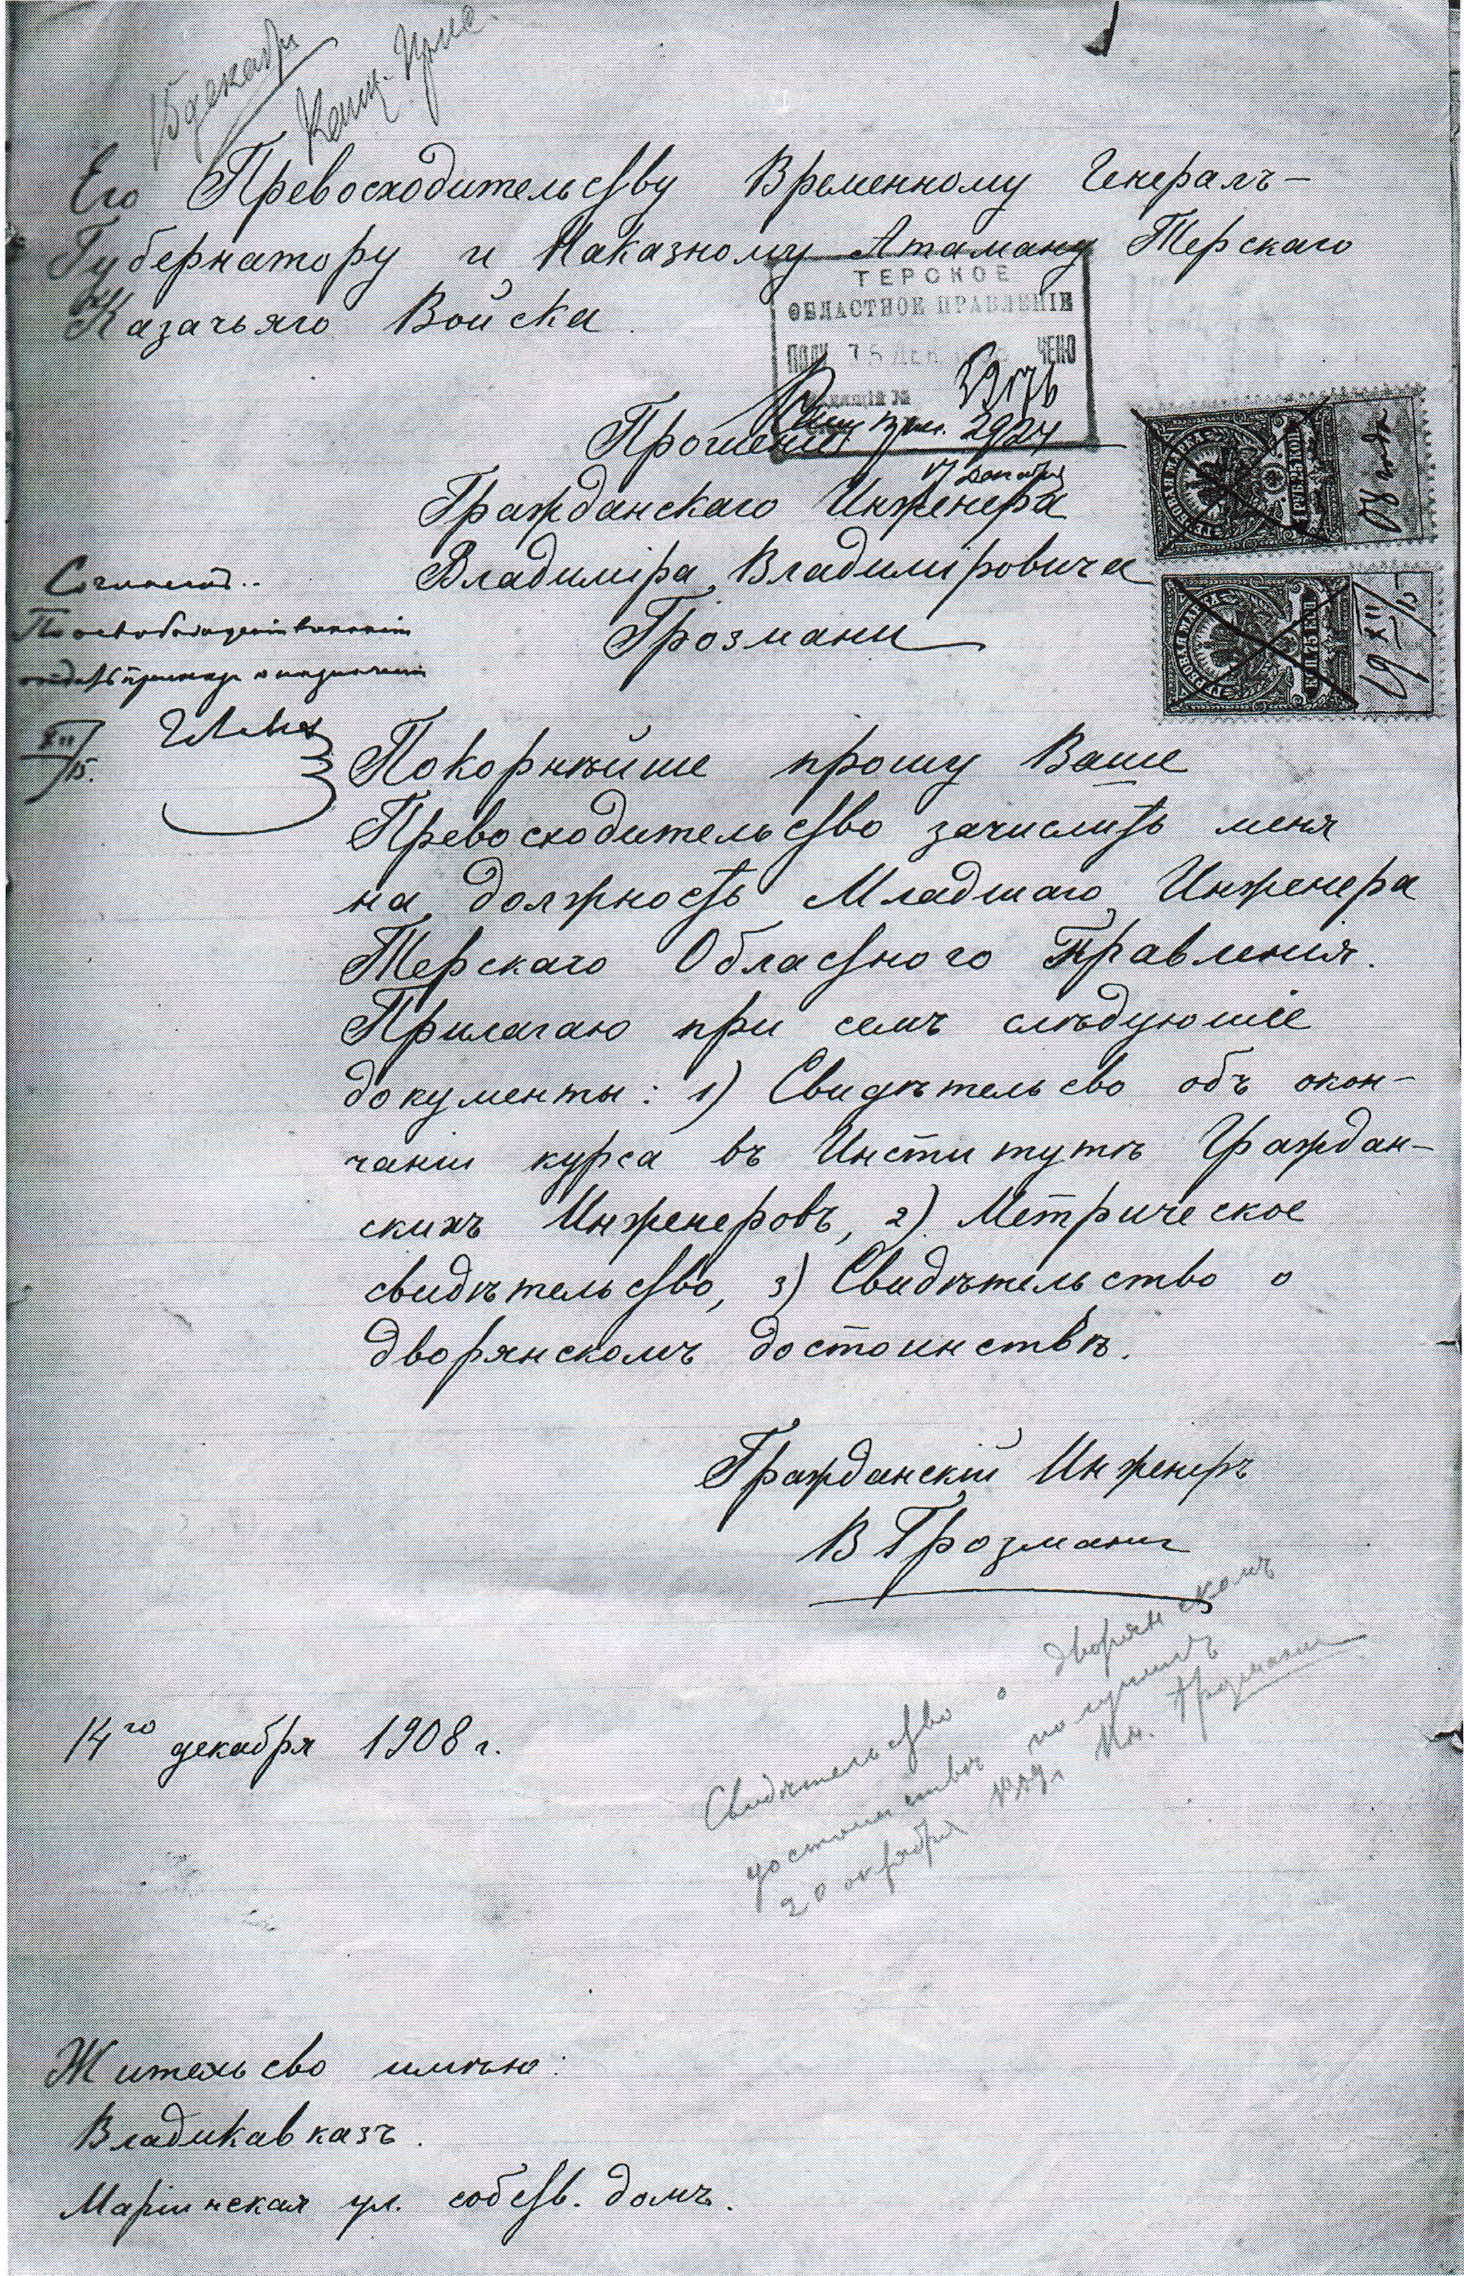 15 декабря
Его Превосходительству Временному Генералъ-
Губернатору и Наказному Атаману Терскаго
Казачьяго Войска.
ТЕРСКОЕ
ОБЛАСТНОЕ ПРАВЛЕНІЕ
ПОЛУЧЕНО 15 ДЕК
№
2924
Прошеніе
17 декабря
Гражданскаго Инженера
Владиміра Владиміровича
Грозмани
75 КОП
08 года
75 КОП
19 XII/15
XII/15.
Покорнѣйше прошу Ваше
Превосходительство зачислить меня
на должность Младшаго Инженера
Терскаго Областного Правленія.
Прилагаю при семъ слѣдующіе
документы: 1) Свидѣтельсво объ окон-
чаніи курса въ Институтѣ Граждан-
скихъ Инженеровъ, 2) Метрическое
свидѣтельство, 3) Свидѣтельство о
дворянскомъ достоинствѣ.
Гражданскій Инженеръ
В Грозмани
14го декабря 1908 г.
Свидѣтельство о дворянскомъ
достоинствѣ получилъ
20 октября 1909 г. Ин. Грозмани
Жительсво имѣю:
Владикавказъ.
Маріинская ул. собств. домъ.